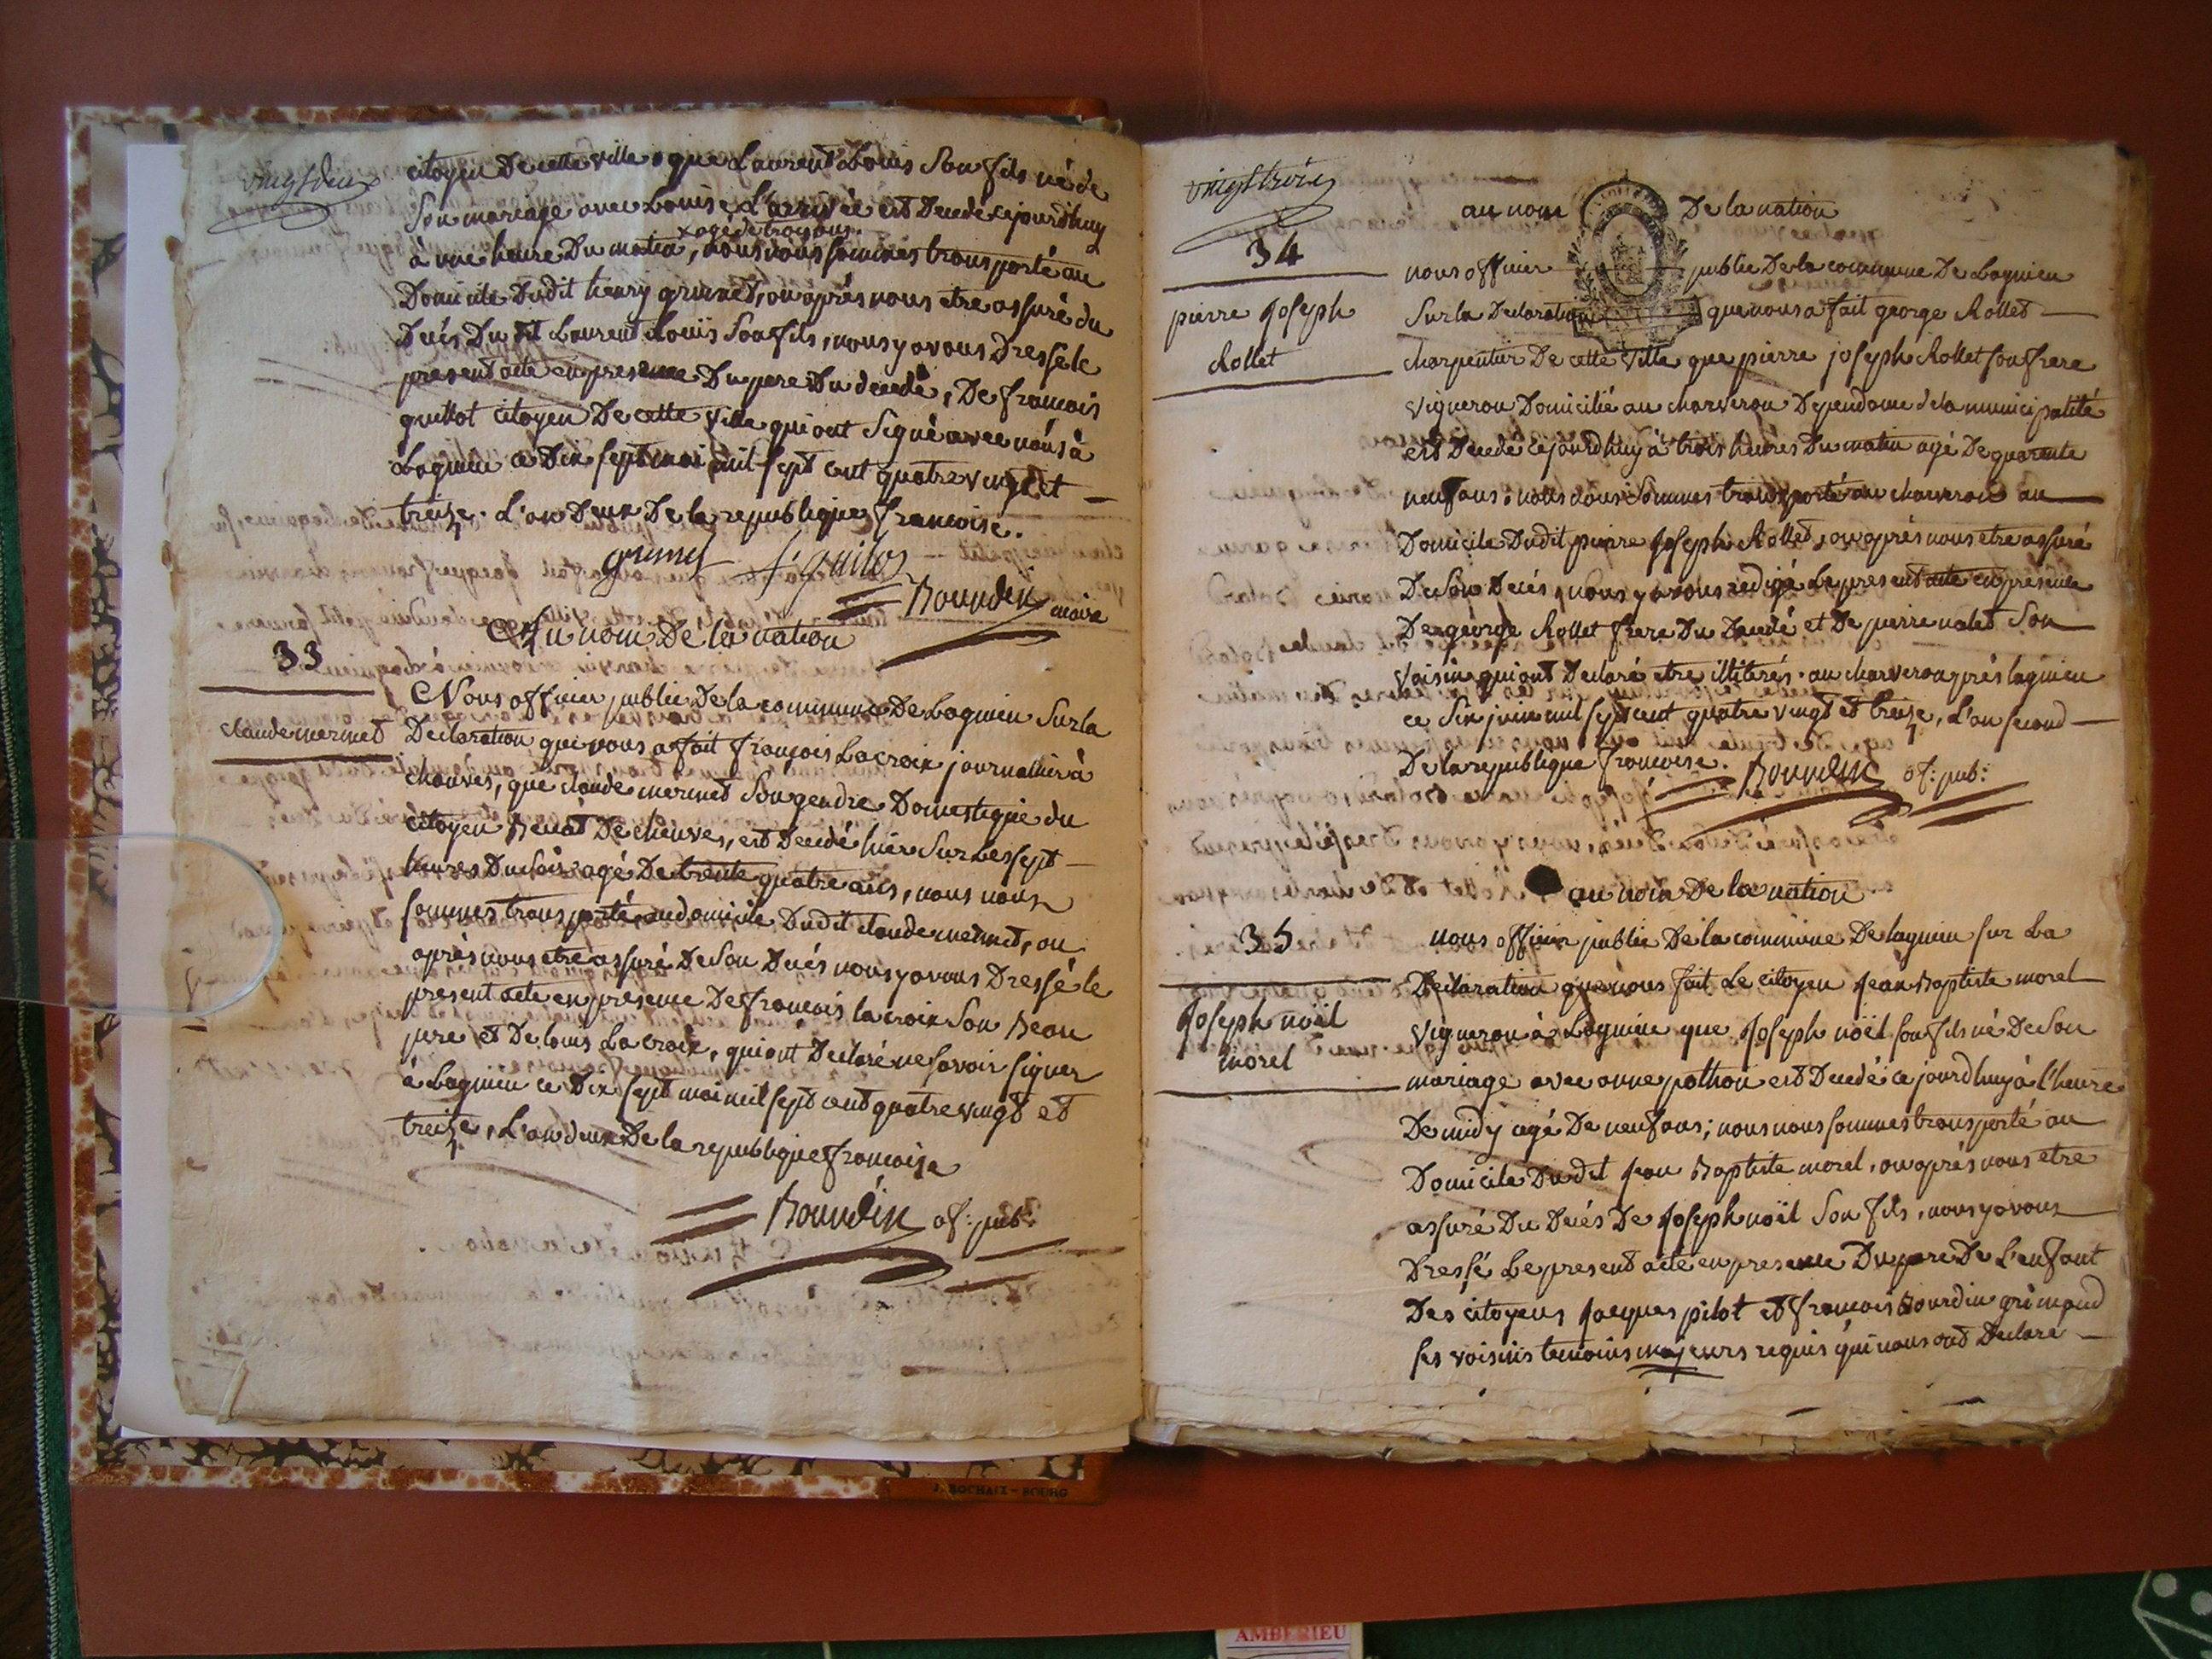 vingtdeux
citoyen De cette ville que Laurent Louis Son fils né de
Son mariage avec Louise L'arrivée est Decedé cejourdhuy
x agé de trois ans.
à une heure Du matin, nous nous sommes transporté au
Domicile Dudit henry grumet, ou après nous etre assuré du
Decés Du dit Laurent Louis Son fils, nous y avons Dressé le
present acte en presence Du pere Du decedé, De francois
guillot citoyen De cette ville qui ont Signé avec nous à
Lagnieu ce Dix sept mai mil sept cent quatre vingt et
treize. L'an Deux De la republique francoise.
grumet f. guillot
Bourdin maire
Au nom De la nation
33
claude mermet
Nous officier public De la commune De Lagnieu Sur la
Declaration que nous a fait françois Lacroix journallier à
chauves, que claude mermet Son gendre Domestique du
citoyen Benat De chauves, est Decedé hier Sur Les sept
heures Du Soir agé De trente quatre ans, nous nous
sommes transporté au domicile Dudit claude mermet, ou
après nous etre assuré De Son Decés nous y avons Dressé le
present acte en presence De françois la croix Son Beau
pere et De louis La croix, qui ont Declaré ne savoir signer
à Lagnieu ce Dix sept mai mil sept cent quatre vingt et
treize, L'an deux De la republique francoise
Bourdin of: pub:
vingttrois
au nom De la nation
34
pierre Joseph
Rollet
nous officier public De la commune De Lagnieu
Sur la Declaration que nous a fait george Rollet
charpentier De cette ville que pierre joseph Rollet son frere
vigneron Domicilié au charveron Dependance de la municipalité
est Decedé cejourdhuy à trois heures Du matin agé De quarante
neuf ans; nous nous Sommes transporté au charveron au
Domicile Dudit pierre Joseph Rollet, ou après nous etre assuré
De Son Decés, nous y avons redigé Le present acte en presence
De george Rollet frere Du Decedé et De pierre Son
voisin qui ont Declaré etre illiterés. au charveron près lagnieu
ce Six juin mil sept cent quatre vingt et treize, L'an second
De la republique francoise. Bourdin of: pub:
au nom De la nation
35
Joseph noël
morel
nous officier public De la commune De lagnieu sur La
Declaration que nous fait Le citoyen Jean Baptiste morel
vigneron à Lagnieu que Joseph noël son fils né De Son
mariage avec anne pothon est Decedé ce jourdhuy à l'heure
De midy agé De neuf ans; nous nous sommes transporté au
Domicile Dudit Jean Baptiste morel, ou après nous etre
assuré Du Decés De Joseph noël Son fils, nous y avons
Dressé Le present acte en presence Du pere De L'enfant
Des citoyens Jacques pilot et françois Bourdin grimaud
ses voisins temoins majeurs requis qui nous ont Declaré
J. ROCHAIX - BOURG
AMBERIEU